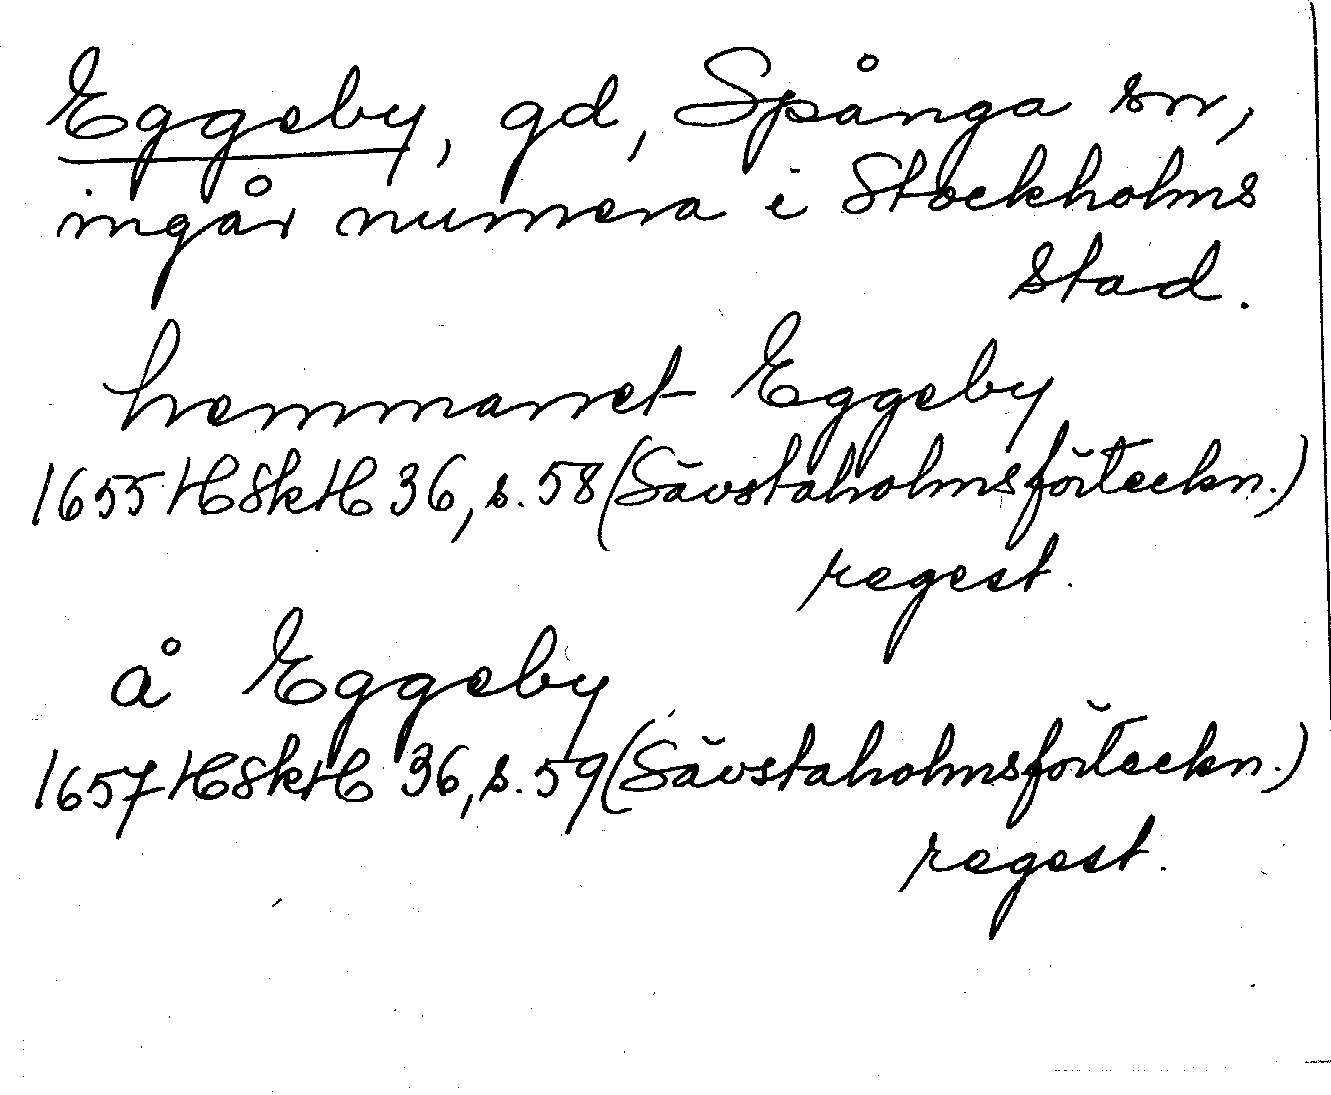 Eggeby, gd, Spånga sn,
ingår numera i Stockholms
stad.
hemmanet Eggeby
1655 HSkH 36, s. 58 (Sävstaholmsförteckn.)
regest.
å Eggeby
1657 HSkH 36, s. 59 (Sävstaholmsförteckn.)
regest.